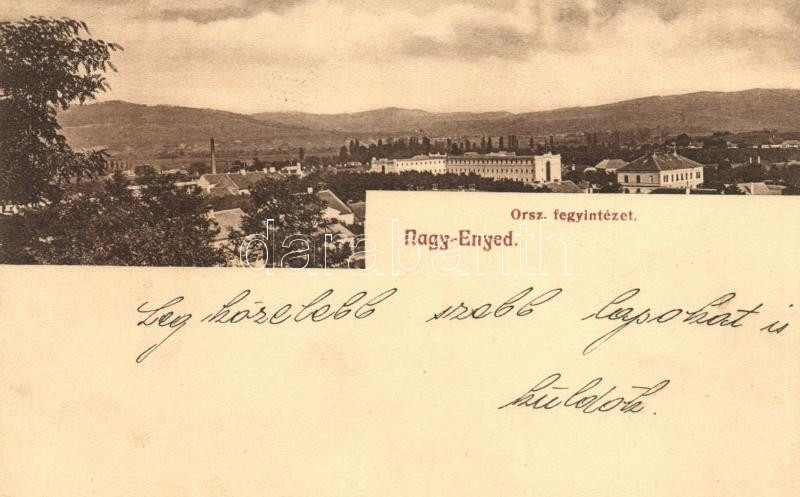 Orsz. fegyintézet.
Nagy-Enyed.
darabanth
Leg közelebb szebb lapokat is
küldök.